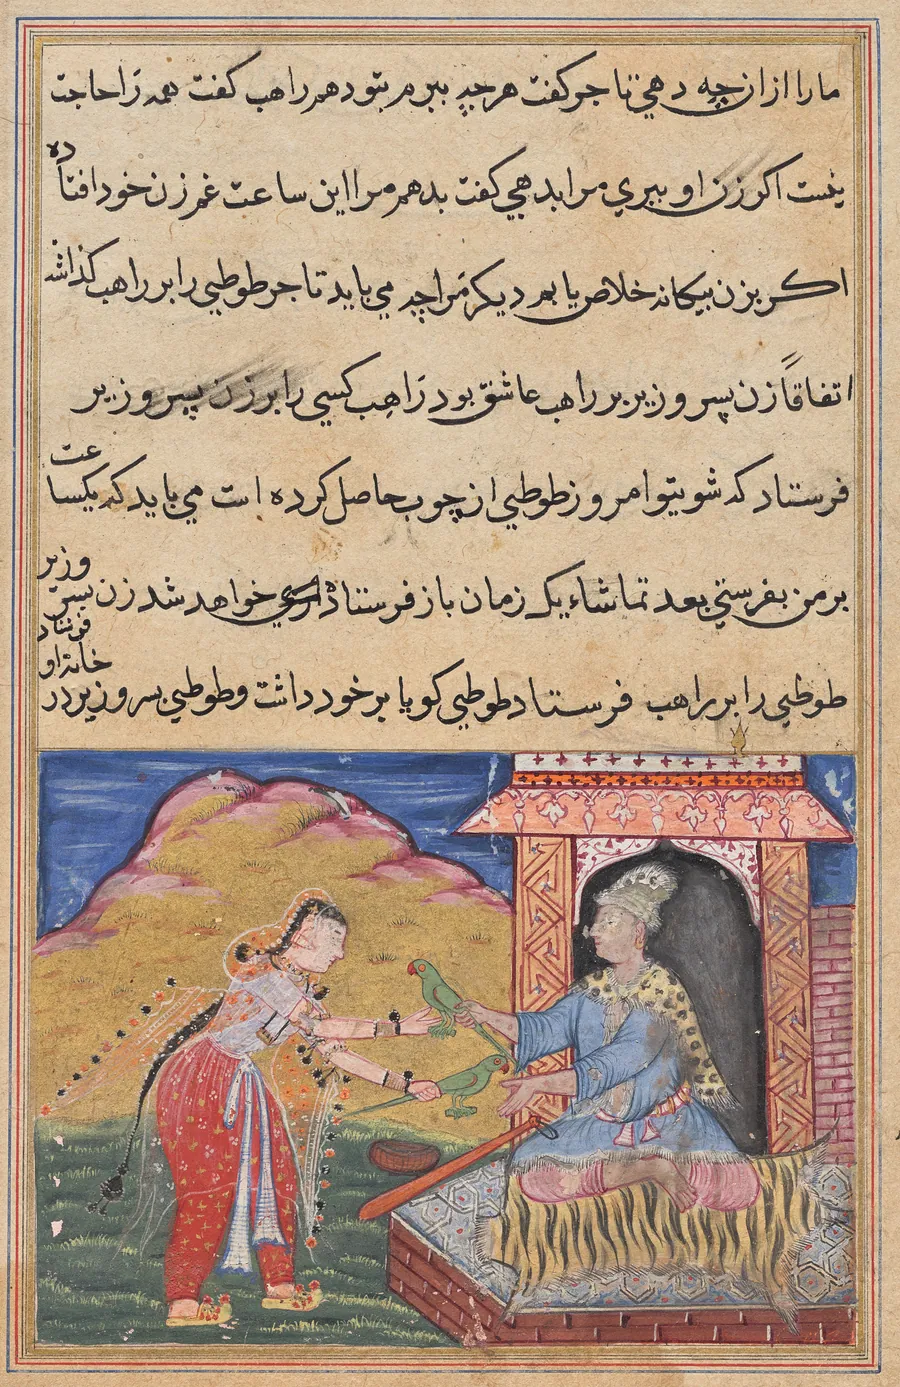 ما را ازان چه دهي تاجر گفت هرچه ببرم بتو دهم راهب گفت همه را حاجت
نیست اگر زن او ببري مرا بدهي گفت بدهم مرا این ساعت غم زن خود افتاده
اگر بزن بیگانه خلاص یابم دیگر مرا چه مي باید تاجر طوطي را بر راهب گذاشت
اتفاقاً زن پسر وزیر بر راهب عاشق بود راهب کسي را بر زن پسر وزیر
فرستاد که شوی تو امروز طوطي از چوب حاصل کرده است مي باید که یکساعت
بر من بفرستي بعد تماشاء یک زمان باز فرستاده خواهد شد زن پسر وزیر
طوطي را بر راهب فرستاد طوطي گویا بر خود داشت و طوطي پسر وزیر در
خانه او فرستاد